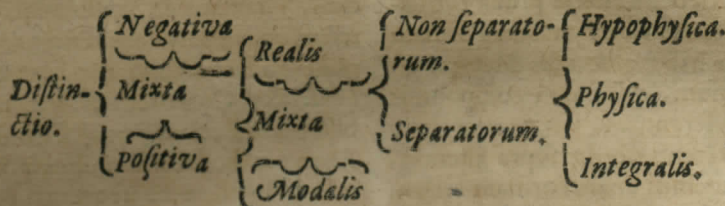 Distin-
ctio.
Negativa
Mixta
Positiva
Realis
Mixta
Modalis
Non separato-
rum.
Separatorum.
Hypophysica.
Physica.
Integralis.